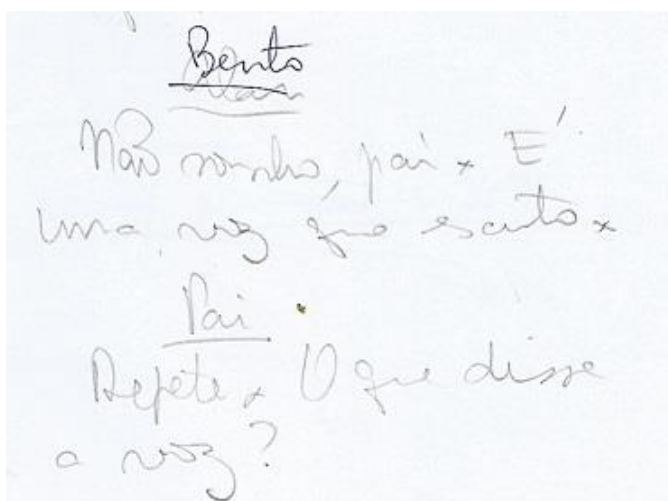 Bento
Não sonho, pai. É
uma voz que escuto.
Pai
Repete. O que disse
a voz?